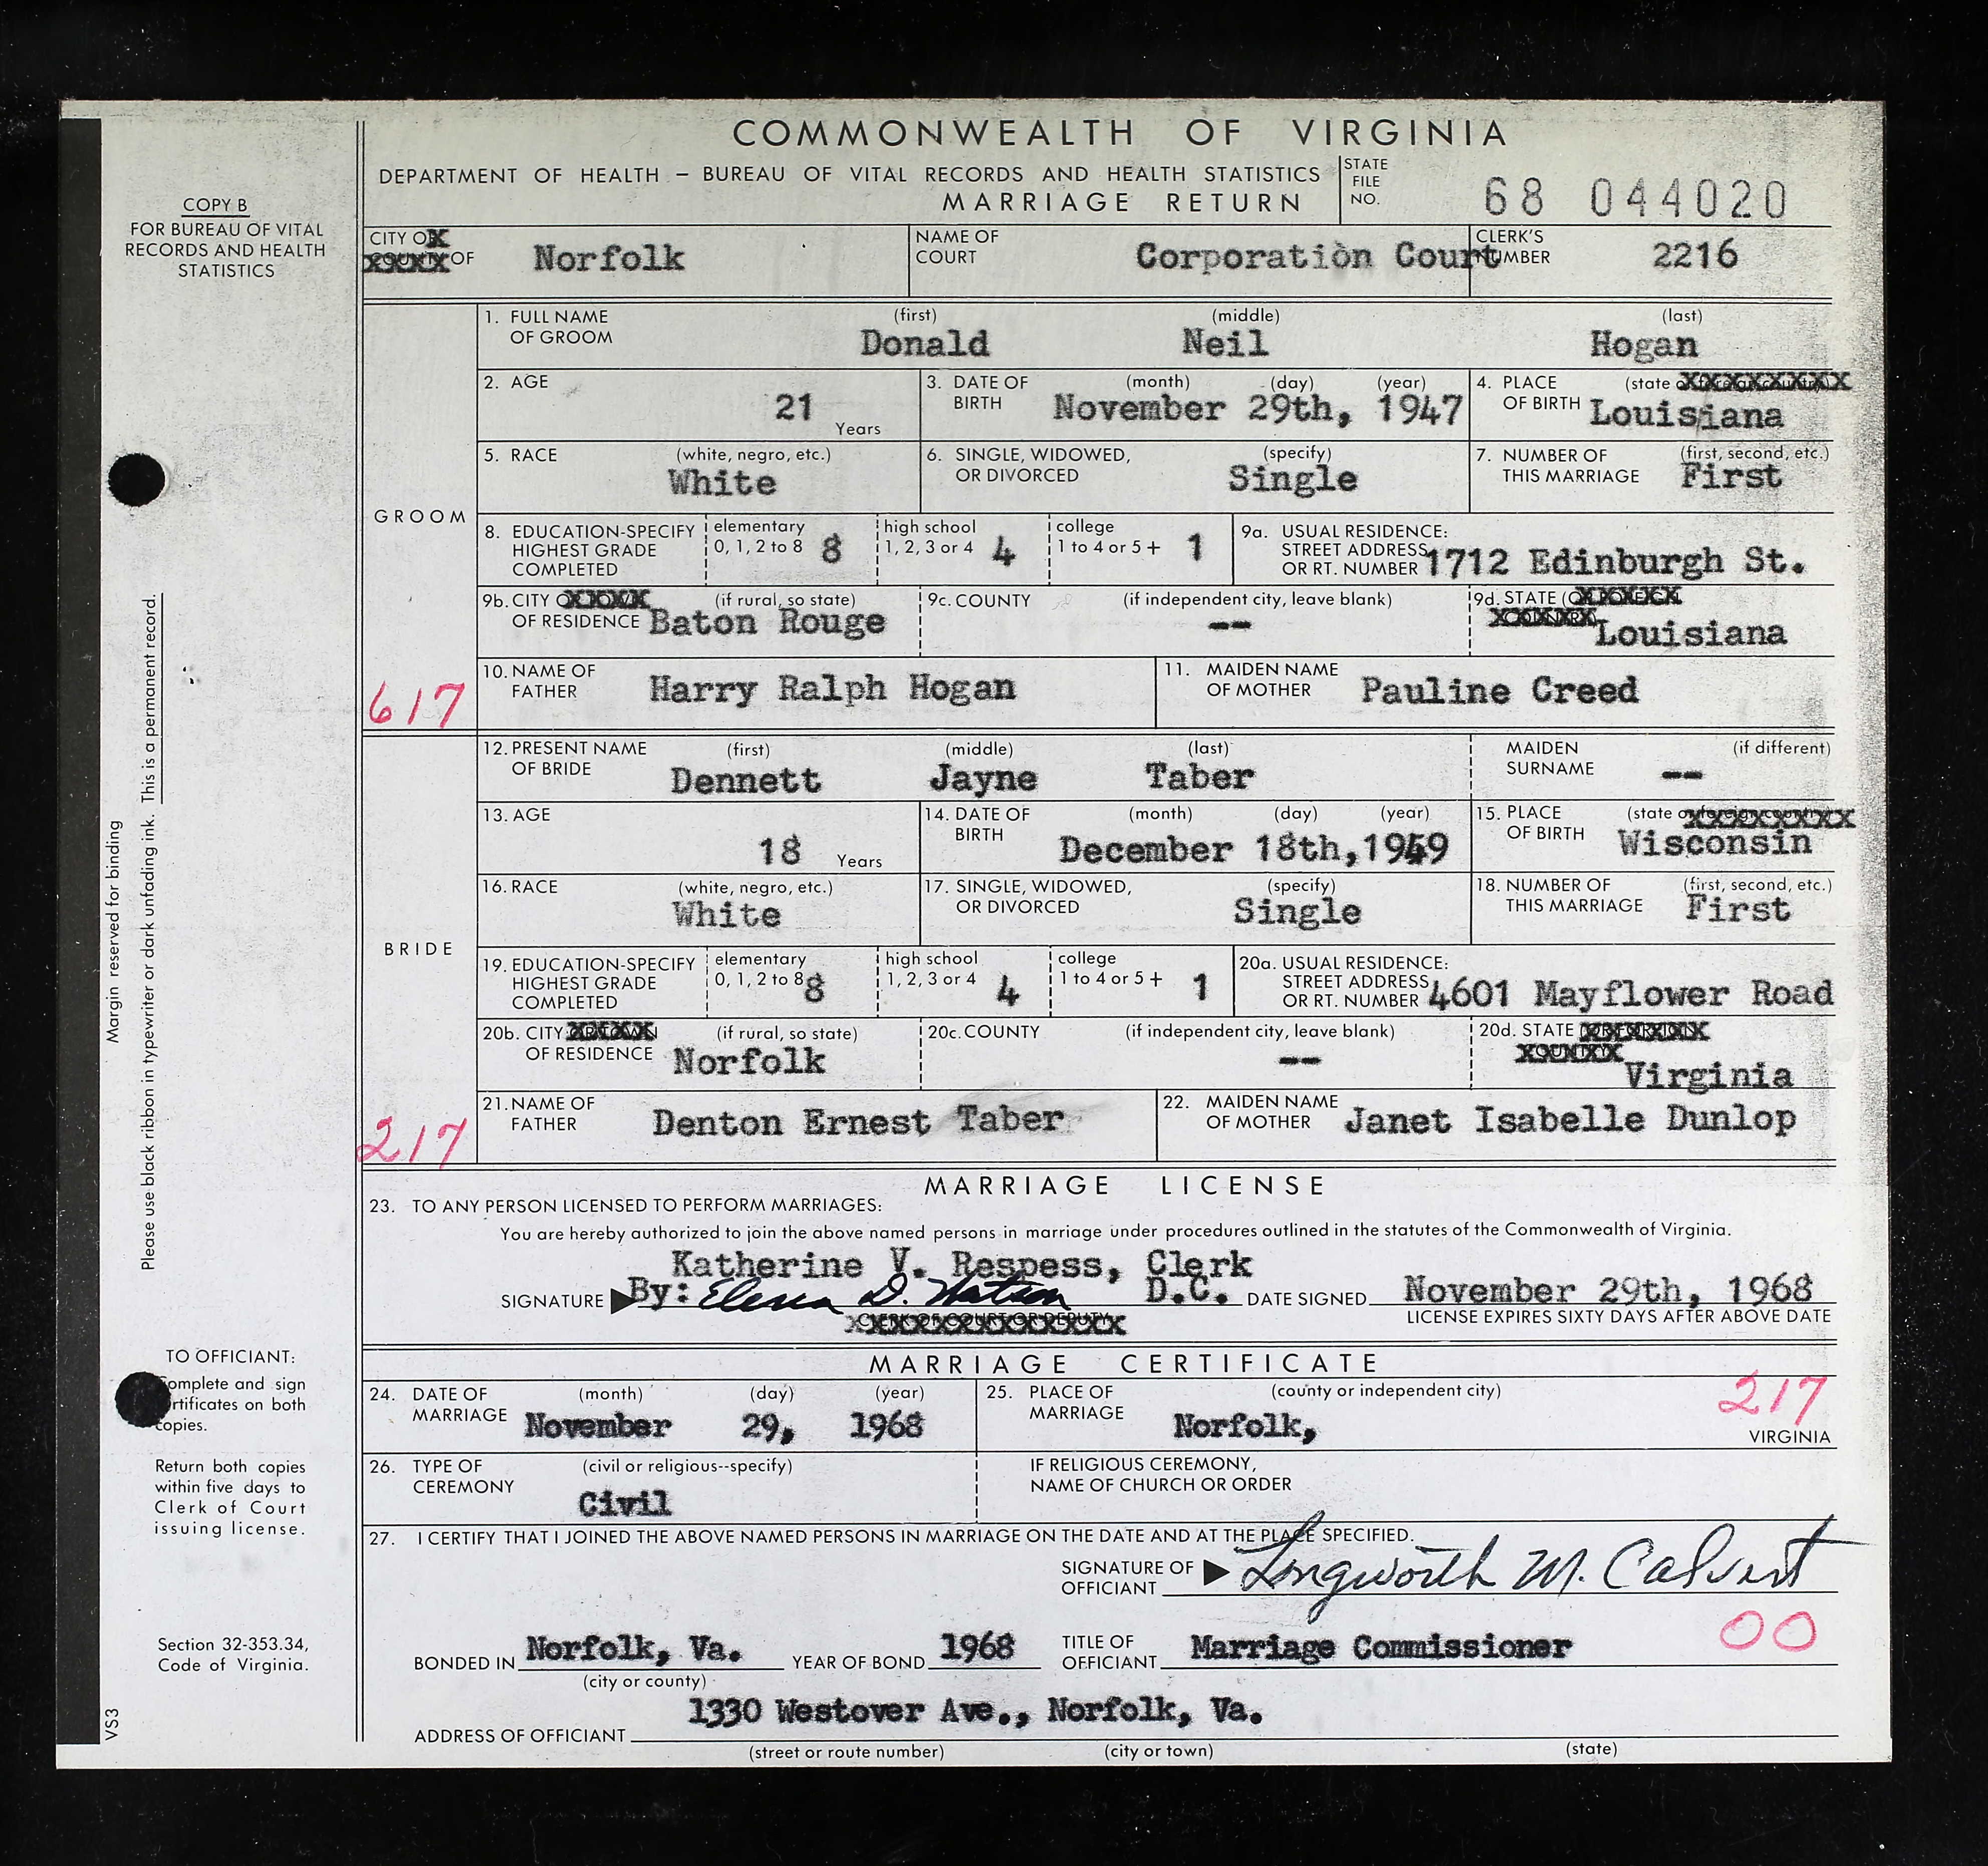 COMMONWEALTH OF VIRGINIA
DEPARTMENT OF HEALTH – BUREAU OF VITAL RECORDS AND HEALTH STATISTICS
MARRIAGE RETURN
STATE FILE NO. 68 044020
COPY B
FOR BUREAU OF VITAL
RECORDS AND HEALTH
STATISTICS
CITY OR COUNTY OF Norfolk
NAME OF COURT Corporation Court
CLERK'S NUMBER 2216
GROOM
617
1. FULL NAME OF GROOM (first) Donald (middle) Neil (last) Hogan
2. AGE 21 Years
3. DATE OF BIRTH (month) (day) (year) November 29th, 1947
4. PLACE OF BIRTH (state or foreign country) Louisiana
5. RACE (white, negro, etc.) White
6. SINGLE, WIDOWED, OR DIVORCED (specify) Single
7. NUMBER OF THIS MARRIAGE (first, second, etc.) First
8. EDUCATION-SPECIFY HIGHEST GRADE COMPLETED elementary 0, 1, 2 to 8 8 high school 1, 2, 3 or 4 4 college 1 to 4 or 5+ 1
9a. USUAL RESIDENCE: STREET ADDRESS OR RT. NUMBER 1712 Edinburgh St.
9b. CITY OR TOWN OF RESIDENCE (if rural, so state) Baton Rouge
9c. COUNTY (if independent city, leave blank) --
9d. STATE (OR FOREIGN COUNTRY) Louisiana
10. NAME OF FATHER Harry Ralph Hogan
11. MAIDEN NAME OF MOTHER Pauline Creed
BRIDE
217
12. PRESENT NAME OF BRIDE (first) Dennett (middle) Jayne (last) Taber
MAIDEN SURNAME (if different) --
13. AGE 18 Years
14. DATE OF BIRTH (month) (day) (year) December 18th, 1949
15. PLACE OF BIRTH (state or foreign country) Wisconsin
16. RACE (white, negro, etc.) White
17. SINGLE, WIDOWED, OR DIVORCED (specify) Single
18. NUMBER OF THIS MARRIAGE (first, second, etc.) First
19. EDUCATION-SPECIFY HIGHEST GRADE COMPLETED elementary 0, 1, 2 to 8 8 high school 1, 2, 3 or 4 4 college 1 to 4 or 5+ 1
20a. USUAL RESIDENCE: STREET ADDRESS OR RT. NUMBER 4601 Mayflower Road
20b. CITY OR TOWN OF RESIDENCE (if rural, so state) Norfolk
20c. COUNTY (if independent city, leave blank) --
20d. STATE (OR FOREIGN COUNTRY) Virginia
21. NAME OF FATHER Denton Ernest Taber
22. MAIDEN NAME OF MOTHER Janet Isabelle Dunlop
MARRIAGE LICENSE
23. TO ANY PERSON LICENSED TO PERFORM MARRIAGES:
You are hereby authorized to join the above named persons in marriage under procedures outlined in the statutes of the Commonwealth of Virginia.
Katherine V. Respess, Clerk
SIGNATURE By: Elena D. Watson D.C. DATE SIGNED November 29th, 1968
CLERK OF COURT OR DEPUTY
LICENSE EXPIRES SIXTY DAYS AFTER ABOVE DATE
MARRIAGE CERTIFICATE
24. DATE OF MARRIAGE (month) November (day) 29, (year) 1968
25. PLACE OF MARRIAGE (county or independent city) Norfolk, VIRGINIA
217
26. TYPE OF CEREMONY (civil or religious--specify) Civil
IF RELIGIOUS CEREMONY, NAME OF CHURCH OR ORDER
27. I CERTIFY THAT I JOINED THE ABOVE NAMED PERSONS IN MARRIAGE ON THE DATE AND AT THE PLACE SPECIFIED.
SIGNATURE OF OFFICIANT Longworth M. Calvert
00
BONDED IN Norfolk, Va. (city or county) YEAR OF BOND 1968 TITLE OF OFFICIANT Marriage Commissioner
ADDRESS OF OFFICIANT 1330 Westover Ave., Norfolk, Va.
(street or route number) (city or town) (state)
Margin reserved for binding
Please use black ribbon in typewriter or dark unfading ink. This is a permanent record.
TO OFFICIANT:
Complete and sign
certificates on both
copies.
Return both copies
within five days to
Clerk of Court
issuing license.
Section 32-353.34,
Code of Virginia.
VS3